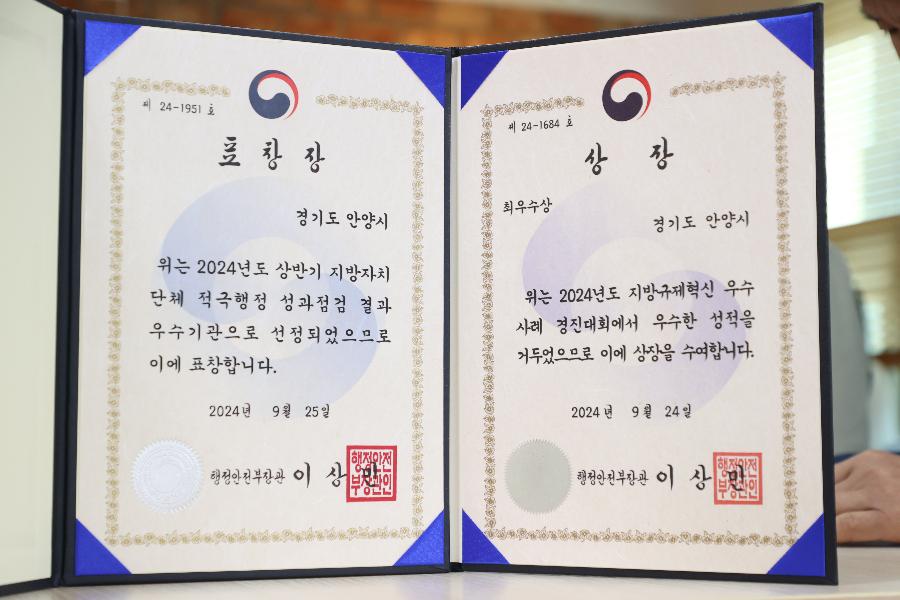 제 24-1951 호
표 창 장
경기도 안양시
위는 2024년도 상반기 지방자치
단체 적극행정 성과점검 결과
우수기관으로 선정되었으므로
이에 표창합니다.
2024년 9월 25일
행정안전부장관 이 상 민
행정안전
부장관인
제 24-1684 호
상 장
최우수상
경기도 안양시
위는 2024년도 지방규제혁신 우수
사례 경진대회에서 우수한 성적을
거두었으므로 이에 상장을 수여합니다.
2024년 9월 24일
행정안전부장관 이 상 민
행정안전
부장관인